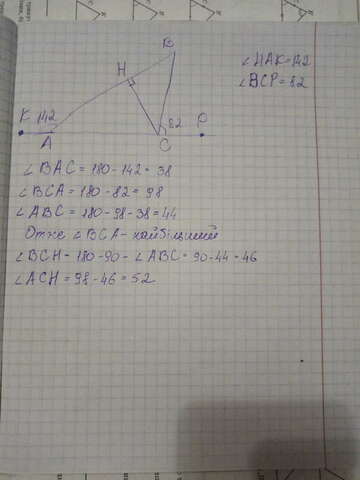 B
H
∠HAK=142
∠BCP=82
K 142
82 P
A
C
∠BAC = 180-142 = 38
∠BCA = 180-82 = 98
∠ABC = 180-98-38=44
Отже ∠BCA- найбільший
∠BCH = 180-90-∠ABC = 90-44 = 46
∠ACH = 98-46 = 52